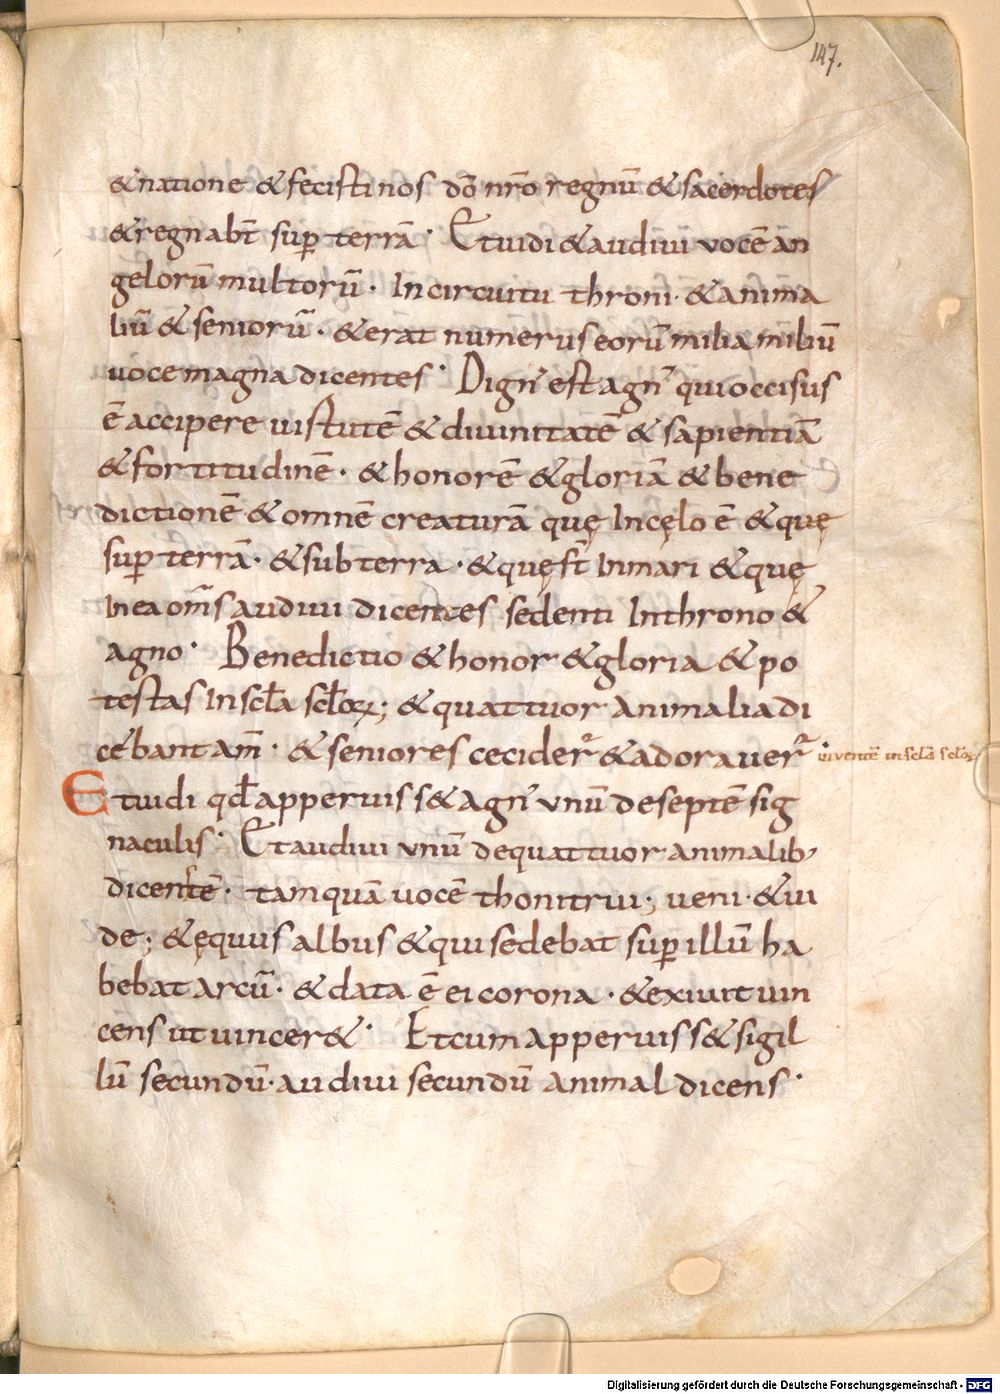 147.
& natione & fecisti nos dō nr̄o regnū & sacerdotes
& regnabt̄ sup̄ terrā· Et uidi & audiui vocē an
gelorū multorū· In circuitu throni· & anima
liū & seniorū· & erat numerus eorū milia miliū
uoce magna dicentes· Dign' est agn' qui occisus
ē accipere uirtutē & diuinitatē & sapientiā
& fortitudinē· & honorē & gloriā & bene
dictionē & omnē creaturā quę In cęlo ē & quę
sup̄ terrā· & sub terra· & quę st̄ In mari & quę
In ea om̄s audiui dicentes sedenti In throno &
agno· Benedictio & honor & gloria & po
testas In scl̄a scl̄oꝝ; & quattuor animalia di
cebant am̄· & seniores cecider̄ & adorauer̄
uiventē in scl̄a scl̄oꝝ
Et uidi qd̄ apperuiss& agn' vnū de septē sig
naculis· Et audiui vnū de quattuor animalib;
dicentē· tamquā uocē thonitrui; ueni· & ui
de; & ęquus albus & qui sedebat sup̄ illū ha
bebat arcū· & data ē ei corona· & exiuit uin
cens ut uincer&· Et cum apperuiss& sigil
lū secundū· audiui secundū animal dicens·
Digitalisierung gefördert durch die Deutsche Forschungsgemeinschaft - DFG